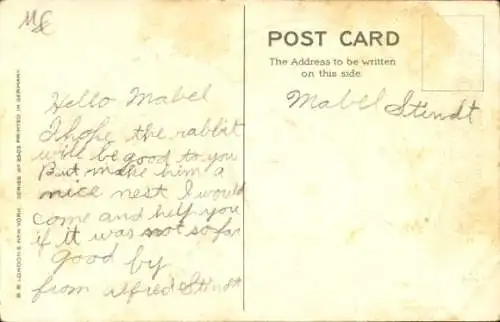 POST CARD
The Address to be written
on this side.
Mabel Stindt
Hello Mabel
I hope the rabbit
will be good to you
But make him a
nice nest I would
come and help you
if it was not so far
good by
from Alfred Stindt
LONDON & NEW YORK. SERIES PRINTED IN GERMANY